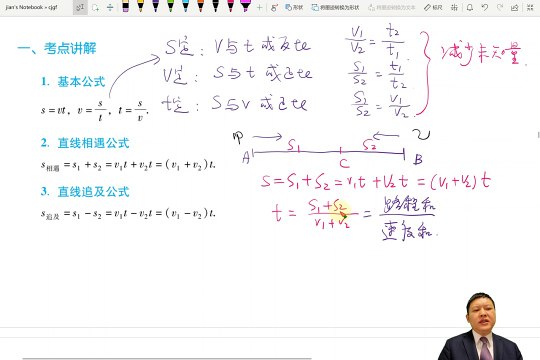 jian's Notebook » cjgf
将图迹转换为形状
将墨迹转换为数学公式
一、考点讲解
1. 基本公式
s = vt, v = s/t, t = s/v.
2. 直线相遇公式
s相遇 = s₁ + s₂ = v₁t + v₂t = (v₁ + v₂)t.
3. 直线追及公式
s追及 = s₁ − s₂ = v₁t − v₂t = (v₁ − v₂)t.
S定: V与t成反比
V定: S与t成正比
t定: S与v成正比
V₁/V₂ = t₂/t₁
S₁/S₂ = t₁/t₂
S₁/S₂ = V₁/V₂
减少未知量
甲 乙
S₁ S₂
A C B
S = S₁ + S₂ = V₁t + V₂t = (V₁ + V₂)t
t = S₁+S₂/V₁+V₂ = 路程和/速度和